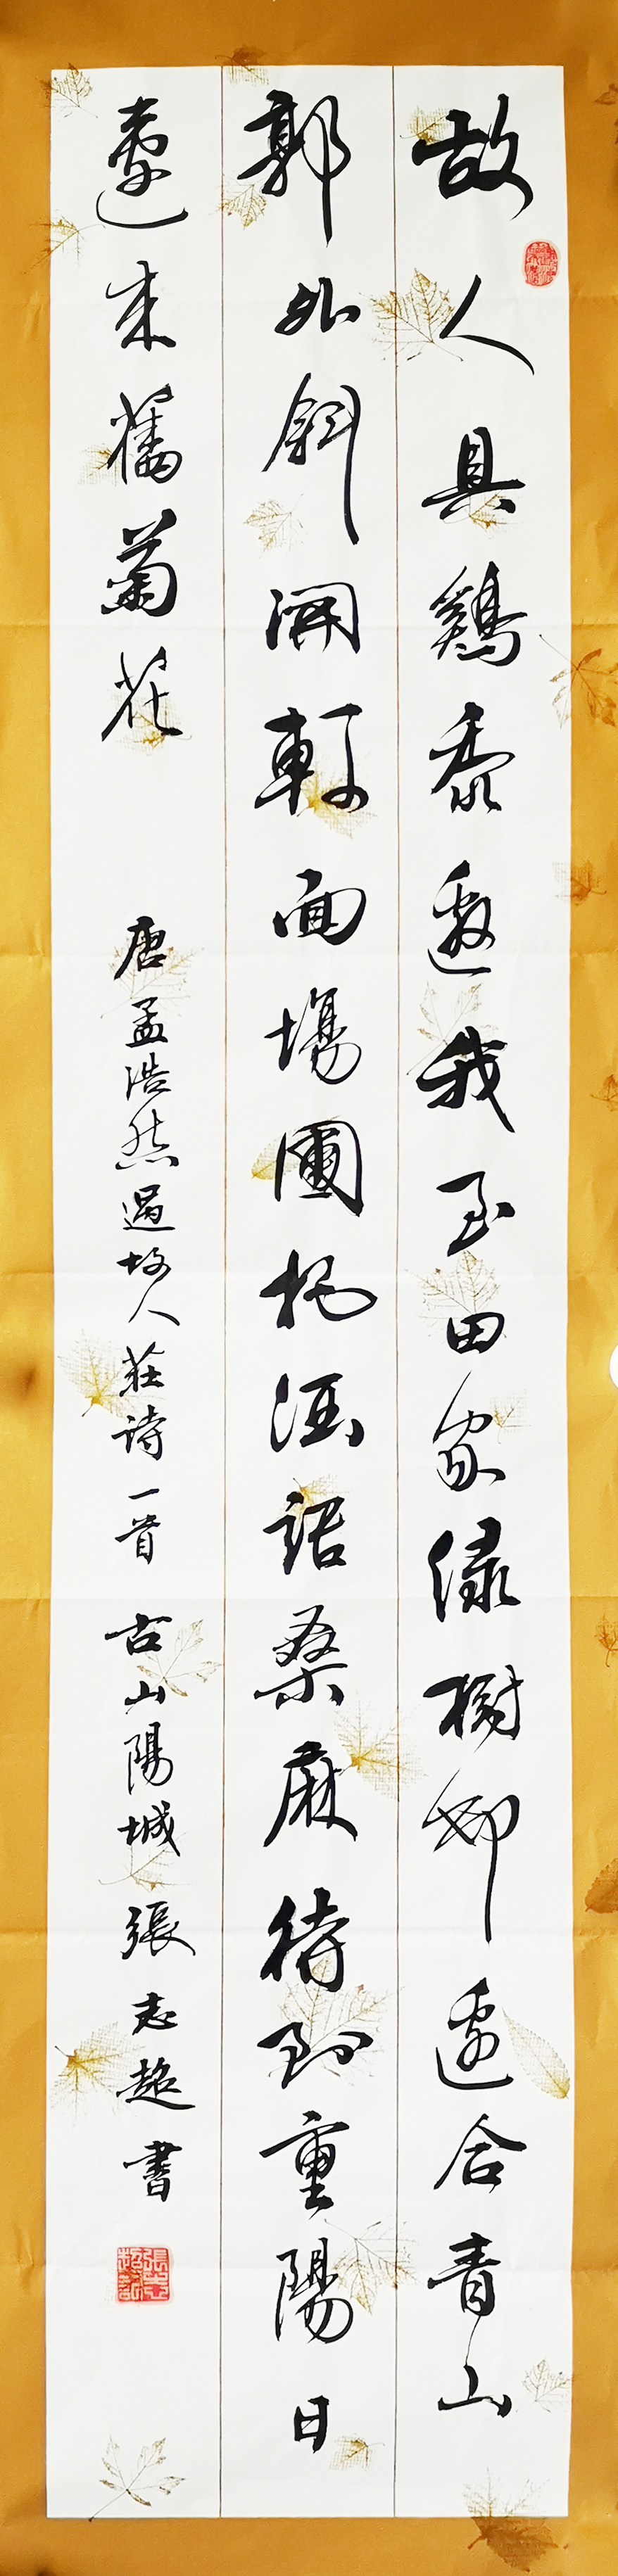 故人具鷄黍邀我至田家绿樹邨邊合青山
郭外斜開軒面場圃把酒話桑麻待到重陽日
還来舊菊花
唐孟浩然過故人莊詩一首 古山陽城張志超書